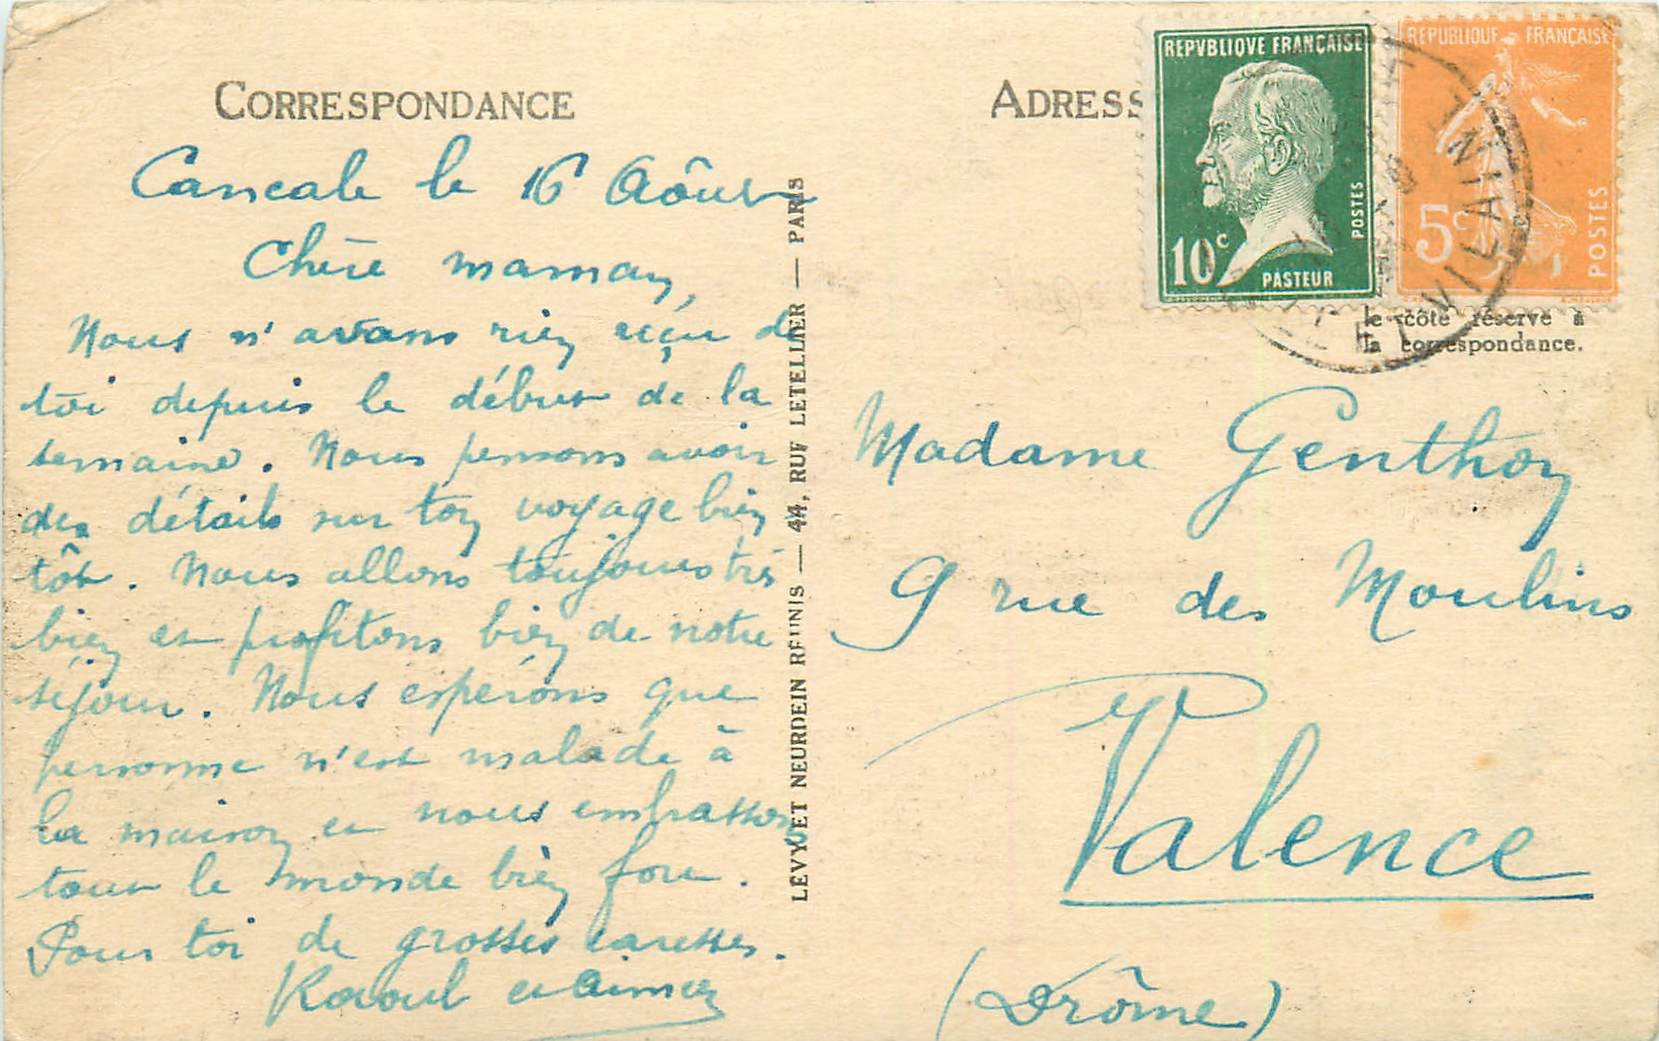 CORRESPONDANCE
Cancale le 16 Aôut
Chère maman,
Nous n'avons rien reçu de
toi depuis le début de la
semaine. Nous pensons avoir
des détails sur ton voyage bien
tôt. Nous allons toujours très
bien et profitons bien de notre
séjour. Nous espérons que
personne n'est malade à
la maison et nous embrassons
tout le monde bien fort.
Pour toi de grosses caresses.
Raoul et
LÉVY ET NEURDEIN RÉUNIS — 44, RUE LETELLIER — PARIS
ADRESS
REPVBLIQVE FRANÇAISE
10c
PASTEUR
POSTES
REPUBLIQUE FRANÇAISE
5c
POSTES
ET VILAINE
le côté réservé à
la correspondance.
Madame Genthon
9 rue des Moulins
Valence
(Drôme)